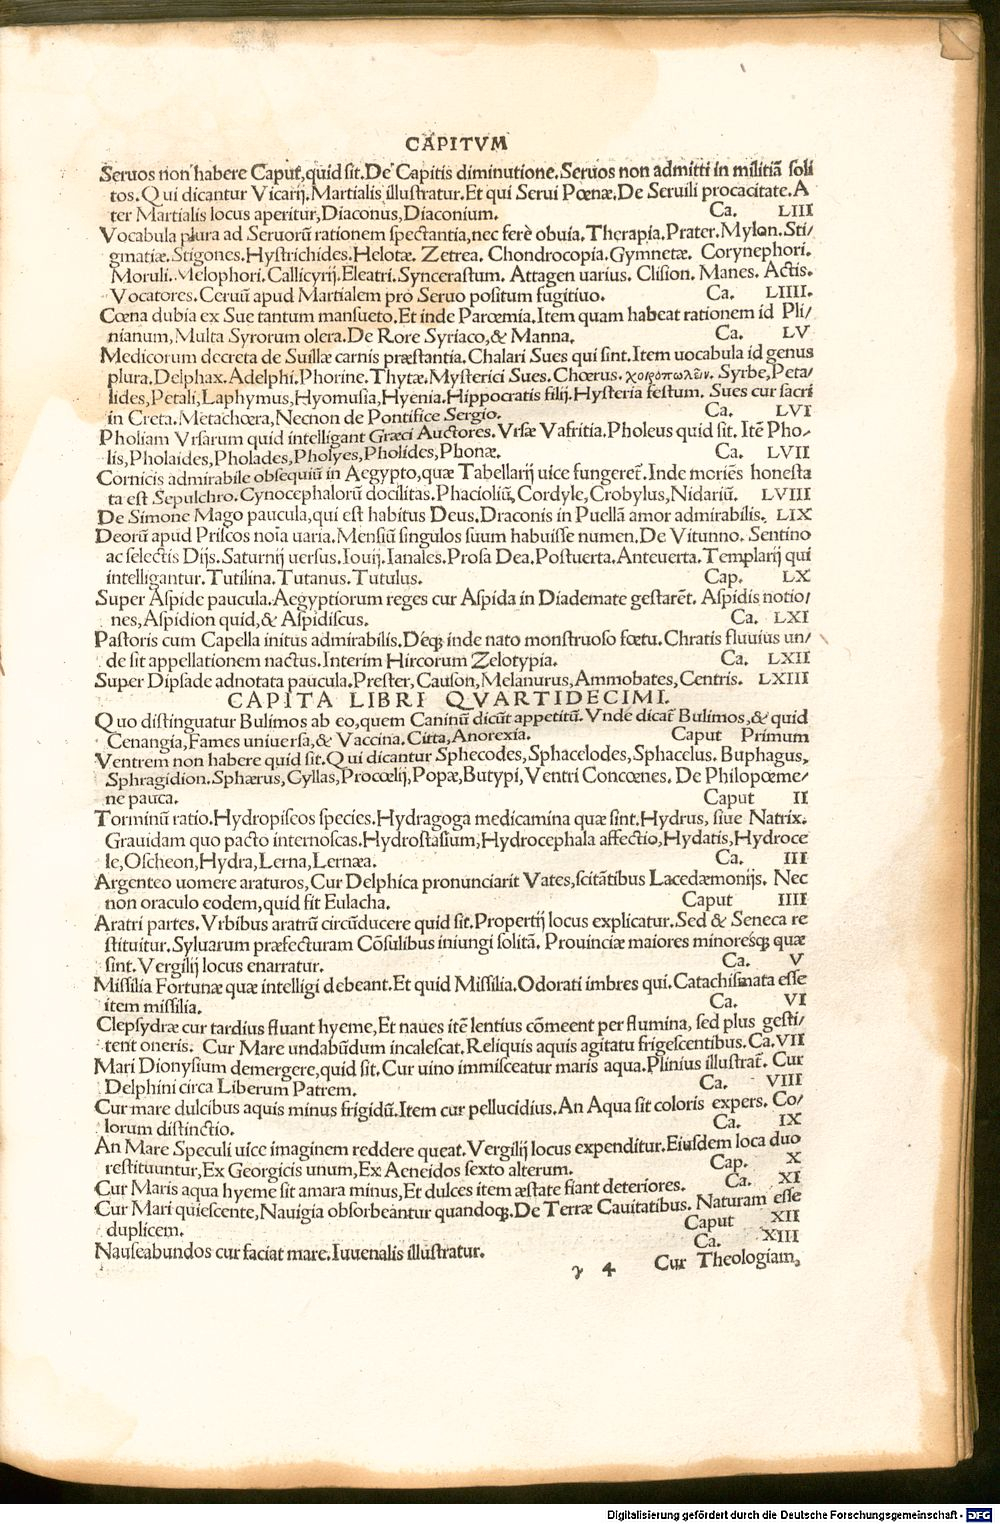 CAPITVM
Seruos non habere Caput,quid sit.De Capitis diminutione.Seruos non admitti in militiã soli
tos.Qui dicantur Vicarij.Martialis illustratur.Et qui Serui Pœnæ.De Seruili procacitate.A
ter Martialis locus aperitur,Diaconus,Diaconium. Ca. LIII
Vocabula plura ad Seruorũ rationem spectantia,nec ferè obuia.Therapia.Prater.Mylon.Sti/
gmatiæ.Stigones.Hystrichides.Helotæ. Zetrea. Chondrocopia.Gymnetæ. Corynephori.
Moruli.Melophori.Callicyrij.Eleatri.Syncerastum. Attagen uarius. Clision. Manes. Actis.
Vocatores.Ceruũ apud Martialem pro Seruo positum fugitiuo. Ca. LIIII.
Cœna dubia ex Sue tantum mansueto.Et inde Parœmia.Item quam habeat rationem id Pli/
nianum,Multa Syrorum olera.De Rore Syriaco,& Manna. Ca. LV
Medicorum decreta de Suillæ carnis præstantia.Chalari Sues qui sint.Item uocabula id genus
plura.Delphax.Adelphi.Phorine.Thytæ.Mysterici Sues.Chœrus.χοιροπωλεῖν. Syrbe,Peta/
lides,Petali,Laphymus,Hyomusia,Hyenia.Hippocratis filij.Hysteria festum. Sues cur sacri
in Creta.Metachœra,Necnon de Pontifice Sergio. Ca. LVI
Pholiam Vrsarum quid intelligant Græci Auctores.Vrsæ Vafritia.Pholeus quid sit. Itẽ Pho/
lis,Pholaides,Pholades,Pholyes,Pholides,Phonæ. Ca. LVII
Cornicis admirabile obsequiũ in Aegypto,quæ Tabellarij uice fungeret̃.Inde moriẽs honesta
ta est Sepulchro.Cynocephalorũ docilitas.Phacioliũ,Cordyle,Crobylus,Nidariũ. LVIII
De Simone Mago paucula,qui est habitus Deus.Draconis in Puellã amor admirabilis. LIX
Deorũ apud Priscos noĩa uaria.Mensiũ singulos suum habuisse numen.De Vitunno. Sentino
ac selectis Dijs.Saturnij uersus.Iouij.Ianales.Prosa Dea.Postuerta.Anteuerta.Templarij qui
intelligantur.Tutilina.Tutanus.Tutulus. Cap. LX
Super Aspide paucula.Aegyptiorum reges cur Aspida in Diademate gestarẽt. Aspidis notio/
nes,Aspidion quid,& Aspidiscus. Ca. LXI
Pastoris cum Capella initus admirabilis.Déq; inde nato monstruoso fœtu.Chratis fluuius un/
de sit appellationem nactus.Interim Hircorum Zelotypia. Ca. LXII
Super Dipsade adnotata paucula.Prester,Causon,Melanurus,Ammobates,Centris. LXIII
CAPITA LIBRI QVARTIDECIMI.
Quo distinguatur Bulimos ab eo,quem Caninũ dicũt appetitũ.Vnde dicat̃ Bulimos,& quid
Cenangia,Fames uniuersa,& Vaccina.Citta,Anorexia. Caput Primum
Ventrem non habere quid sit.Qui dicantur Sphecodes,Sphacelodes,Sphacelus. Buphagus,
Sphragidion.Sphærus,Gyllas,Procœlij,Popæ,Butypi,Ventri Concœnes. De Philopœme/
ne pauca. Caput II
Torminũ ratio.Hydropiscos species.Hydragoga medicamina quæ sint.Hydrus, siue Natrix.
Grauidam quo pacto internoscas.Hydrostasium,Hydrocephala affectio,Hydatis,Hydroce
le,Oscheon,Hydra,Lerna,Lernæa. Ca. III
Argenteo uomere araturos,Cur Delphica pronunciarit Vates,scitãtibus Lacedæmonijs. Nec
non oraculo eodem,quid sit Eulacha. Caput IIII
Aratri partes.Vrbibus aratrũ circũducere quid sit.Propertij locus explicatur.Sed & Seneca re
stituitur.Syluarum præfecturam Cõsulibus iniungi solitã. Prouinciæ maiores minorésq; quæ
sint.Vergilij locus enarratur. Ca. V
Missilia Fortunæ quæ intelligi debeant.Et quid Missilia.Odorati imbres qui.Catachismata esse
item missilia. Ca. VI
Clepsydræ cur tardius fluant hyeme,Et naues itẽ lentius cõmeent per flumina, sed plus gesti/
tent oneris. Cur Mare undabũdum incalescat.Reliquis aquis agitatu frigescentibus.Ca.VII
Mari Dionysium demergere,quid sit.Cur uino immisceatur maris aqua.Plinius illustrat̃. Cur
Delphini circa Liberum Patrem. Ca. VIII
Cur mare dulcibus aquis minus frigidũ.Item cur pellucidius.An Aqua sit coloris expers. Co/
lorum distinctio. Ca. IX
An Mare Speculi uice imaginem reddere queat.Vergilij locus expenditur.Eiusdem loca duo
restituuntur,Ex Georgicis unum,Ex Aeneidos sexto alterum. Cap. X
Cur Maris aqua hyeme sit amara minus,Et dulces item æstate fiant deteriores. Ca. XI
Cur Mari quiescente,Nauigia obsorbeantur quandoq;.De Terræ Cauitatibus. Naturam esse
duplicem. Caput XII
Nauseabundos cur faciat mare.Iuuenalis illustratur. Ca. XIII
γ 4 Cur Theologiam,
Digitalisierung gefördert durch die Deutsche Forschungsgemeinschaft - DFG